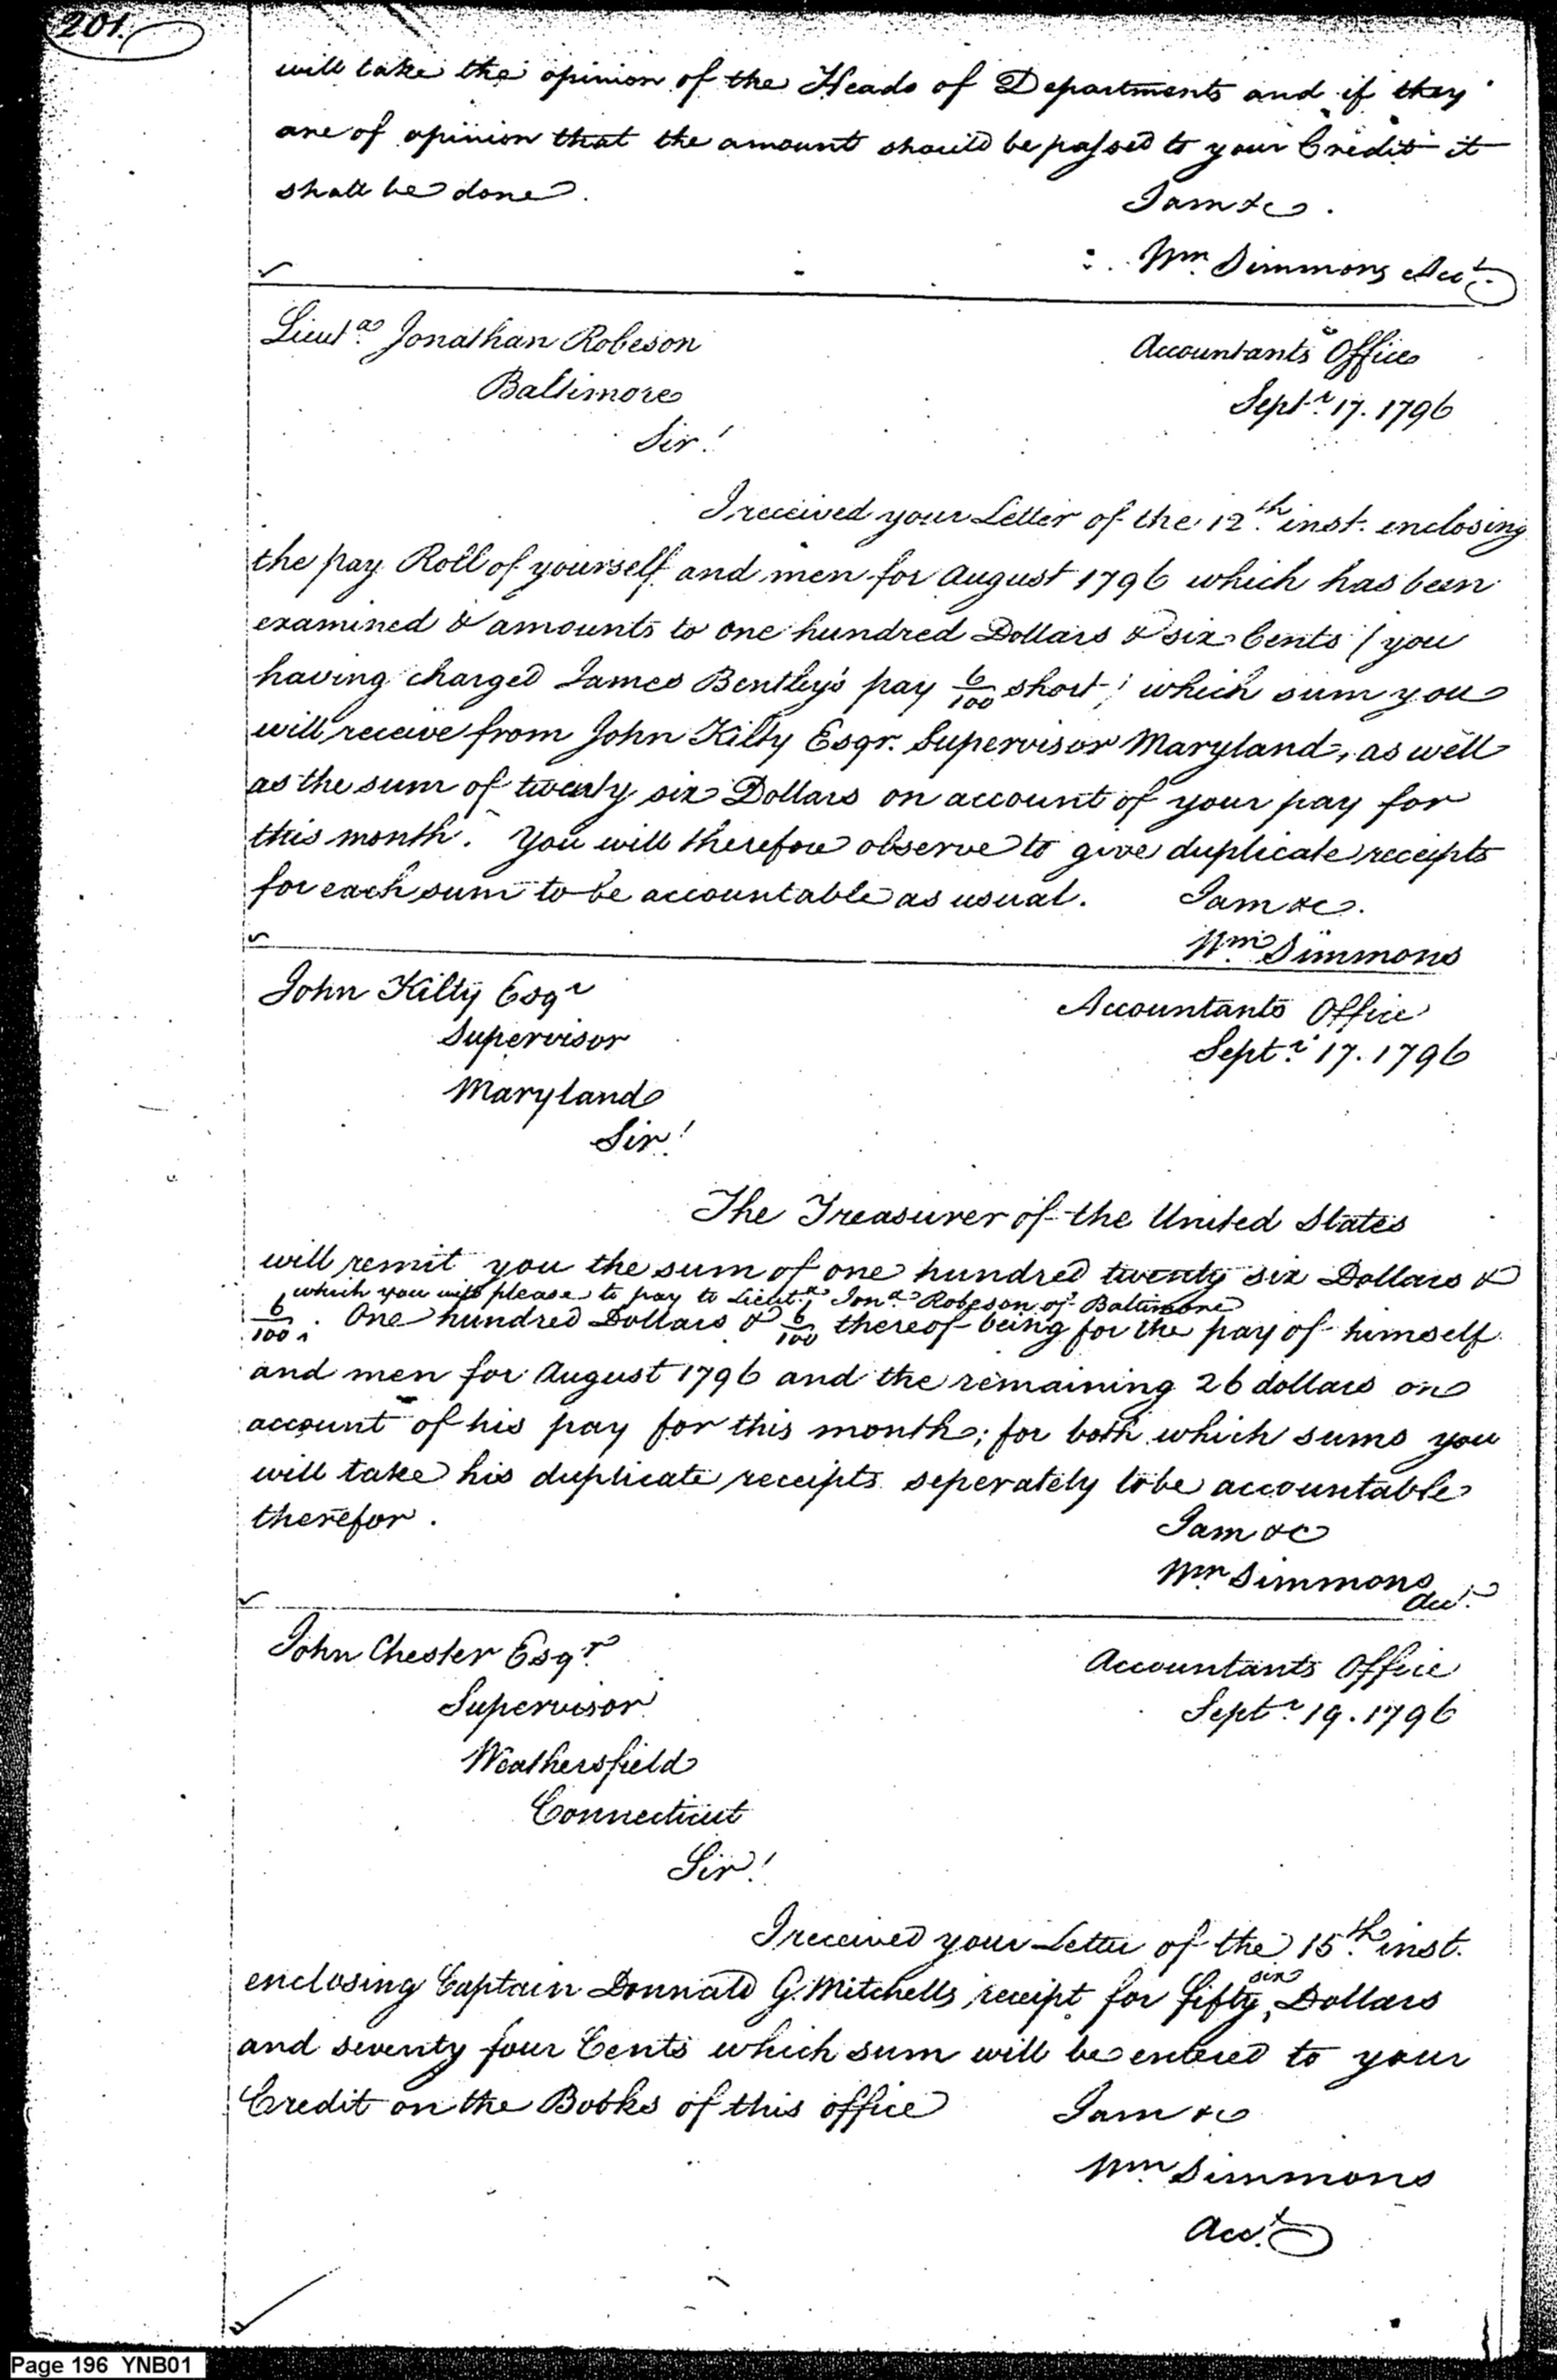 201.
will take the opinion of the Heads of Departments and if they
are of opinion that the amount should be passed to your Credit it
shall be done.
I am &c.
Wm. Simmons Acct.
Lieut. Jonathan Robeson
Accountants Office
Baltimore
Septr. 17. 1796
Sir!
I received your Letter of the 12th. inst. enclosing
the pay Roll of yourself and men for August 1796 which has been
examined & amounts to one hundred Dollars & six Cents (you
having charged James Bentley's pay 6/100 short) which sum you
will receive from John Kilty Esqr. Supervisor Maryland, as well
as the sum of twenty six Dollars on account of your pay for
this month. You will therefore observe to give duplicate receipts
for each sum to be accountable as usual.
I am &c.
Wm. Simmons
John Kilty Esqr
Accountants Office
Supervisor
Septr. 17. 1796
Maryland
Sir!
The Treasurer of the United States
will remit you the sum of one hundred twenty six Dollars &
which you will please to pay to Lieut. Jona. Robeson of Baltimore
6/100. One hundred Dollars & 6/100 thereof being for the pay of himself
and men for August 1796 and the remaining 26 dollars on
account of his pay for this month; for both which sums you
will take his duplicate receipts seperately to be accountable
therefor.
I am &c
Wm Simmons
Acct.
John Chester Esqr.
Accountants Office
Supervisor
Septr. 19. 1796
Weathersfield
Connecticut
Sir!
I received your Letter of the 15th. inst.
six
enclosing Captain Donnald G. Mitchells receipt for fifty Dollars
and seventy four Cents which sum will be entered to your
Credit on the Books of this office
I am &c
Wm Simmons
Acct.
Page 196 YNB01